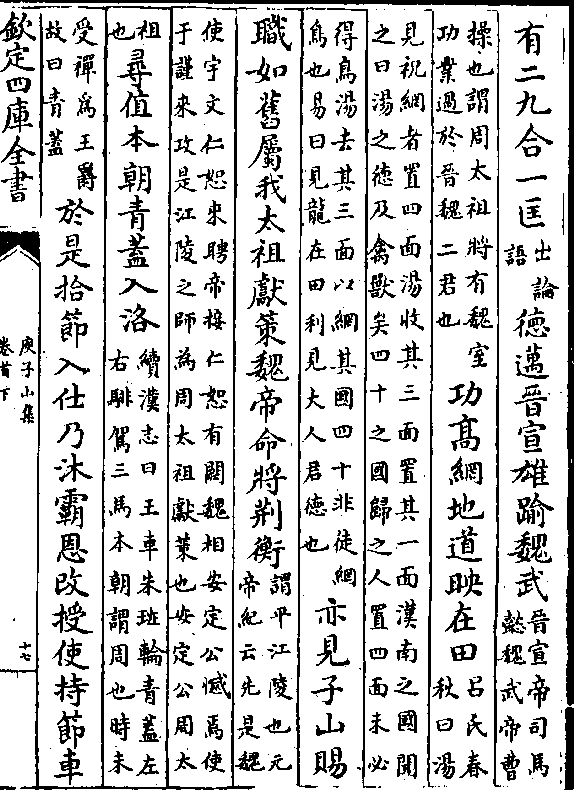 有二九合一匡出論
語德邁晉宣雄踰魏武晉宣帝司馬
懿魏武帝曹
操也謂周太祖將有魏室
功業過於晉魏二君也功高網地道映在田呂氏春
秋曰湯
見祝網者置四面湯收其三面置其一面漢南之國聞
之曰湯之德及禽獸矣四十之國歸之人置四面未必
得鳥湯去其三面以網其國四十非徒網
鳥也易曰見龍在田利見大人君德也亦見子山賜
職如舊屬我太祖獻策魏帝命將荊衡謂平江陵也元
帝紀云先是魏
使宇文仁恕來聘帝接仁恕有闕魏相安定公憾焉使
于謹來攻是江陵之師為周太祖獻策也安定公周太
祖
也尋值本朝青蓋入洛續漢志曰王車朱班輪青蓋左
右騑駕三馬本朝謂周也時未
受禪為王爵
故曰青蓋於是拾節入仕乃沐霸恩改授使持節車
欽定四庫全書
庾子山集
卷首下
十七